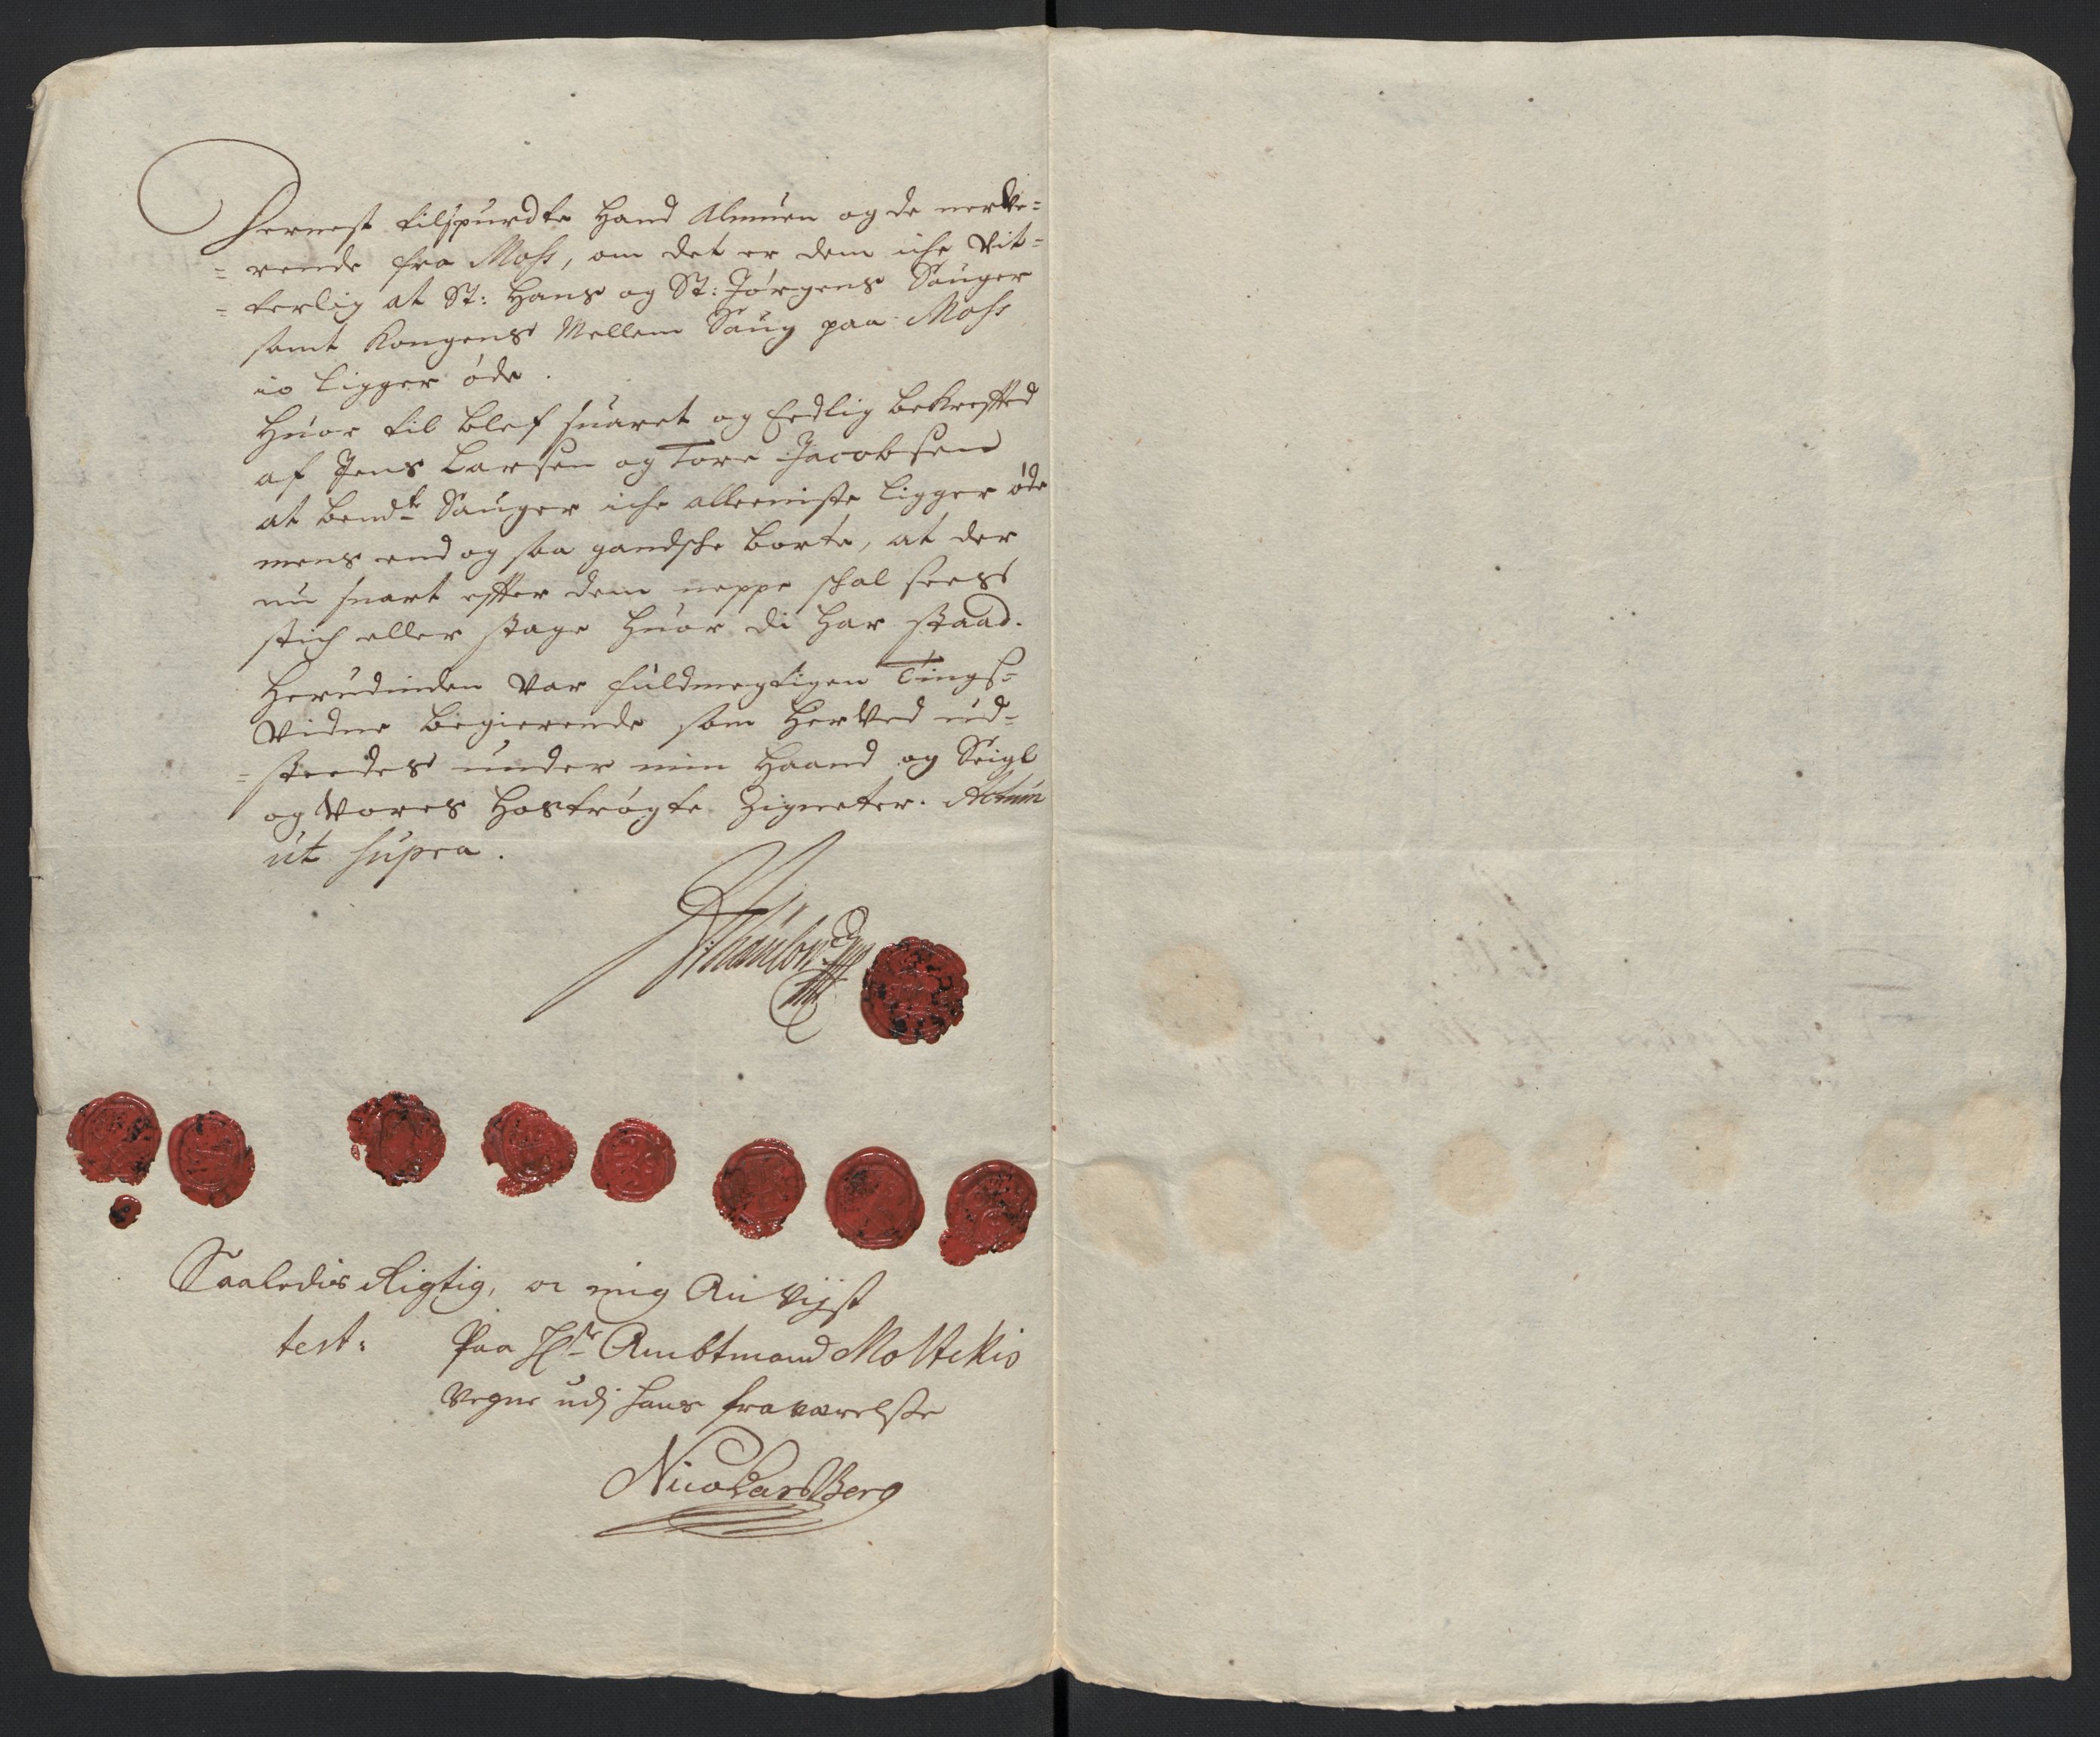 Dernest tilspurdte hand Almuen og de nerve=
=rende fra Moss, om det er dem iche Vit=
=terlig at St: Hans og St: Jørgens Sauger
samt Kongens Mellem Saug paa Moss
io ligger øde.
Huor til blef suaret og Eedlig bekreffted
af Jens Larsen og Tore Jacobsen
at bemd:te Sauger iche alleeniste ligger øde
mens end og saa gandsche borte, at der
nu snart effter dem neppe schal sees
stich eller stage huor di har staad.
Herudinden Var fuldmegtigen Tings=
Vidne begierende som herved ud=
=steedes under min Haand og Seigl
og Vores hostrøgte Zigneter. Actum
ut supra.
Saaledis Rigtig, er mig An Vijst
test: Paa Hr Ambtmand Moltekis
Vegne udj hans fraværelsse
Nicolai Berg